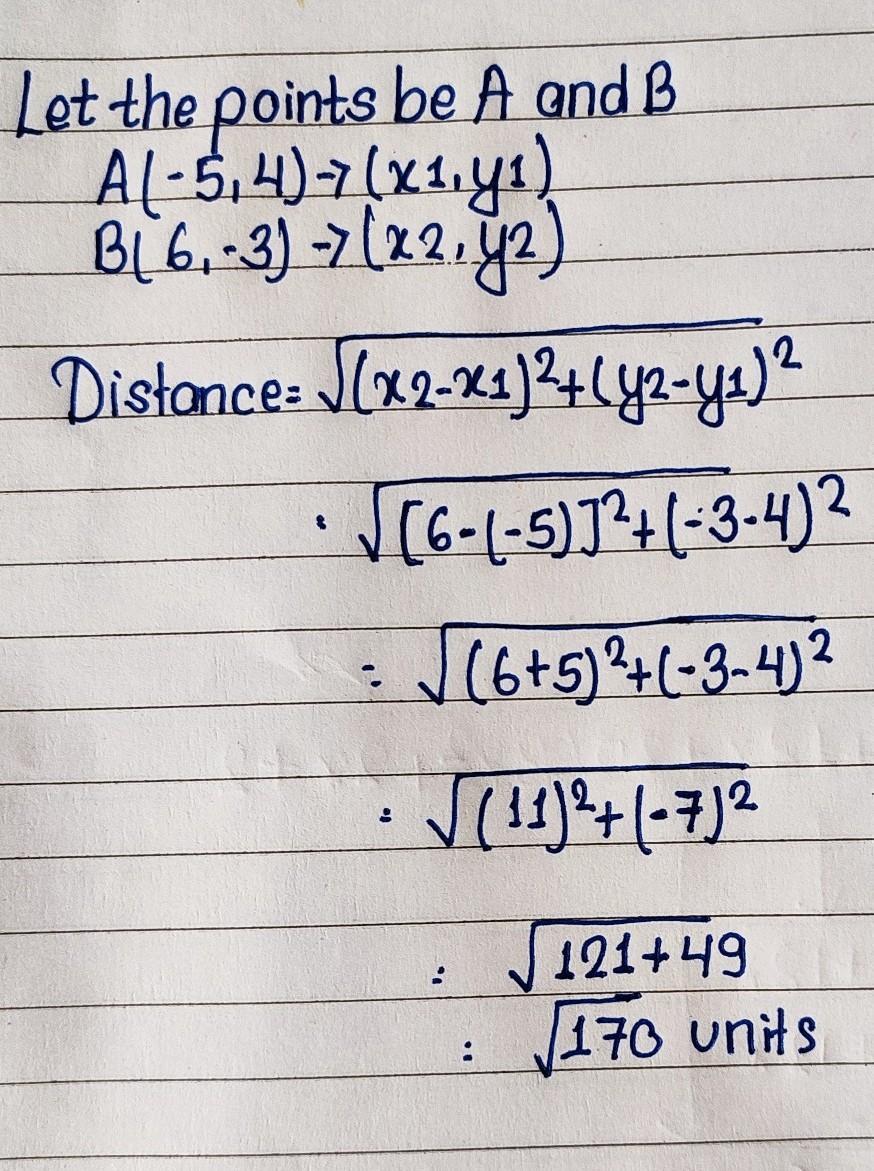 Let the points be A and B
A(-5,4)→(x1,y1)
B(6,-3)→(x2,y2)
Distance=√(x2-x1)²+(y2-y1)²
=√[6-(-5)]²+(-3-4)²
=√(6+5)²+(-3-4)²
=√(11)²+(-7)²
=√121+49
=√170 units